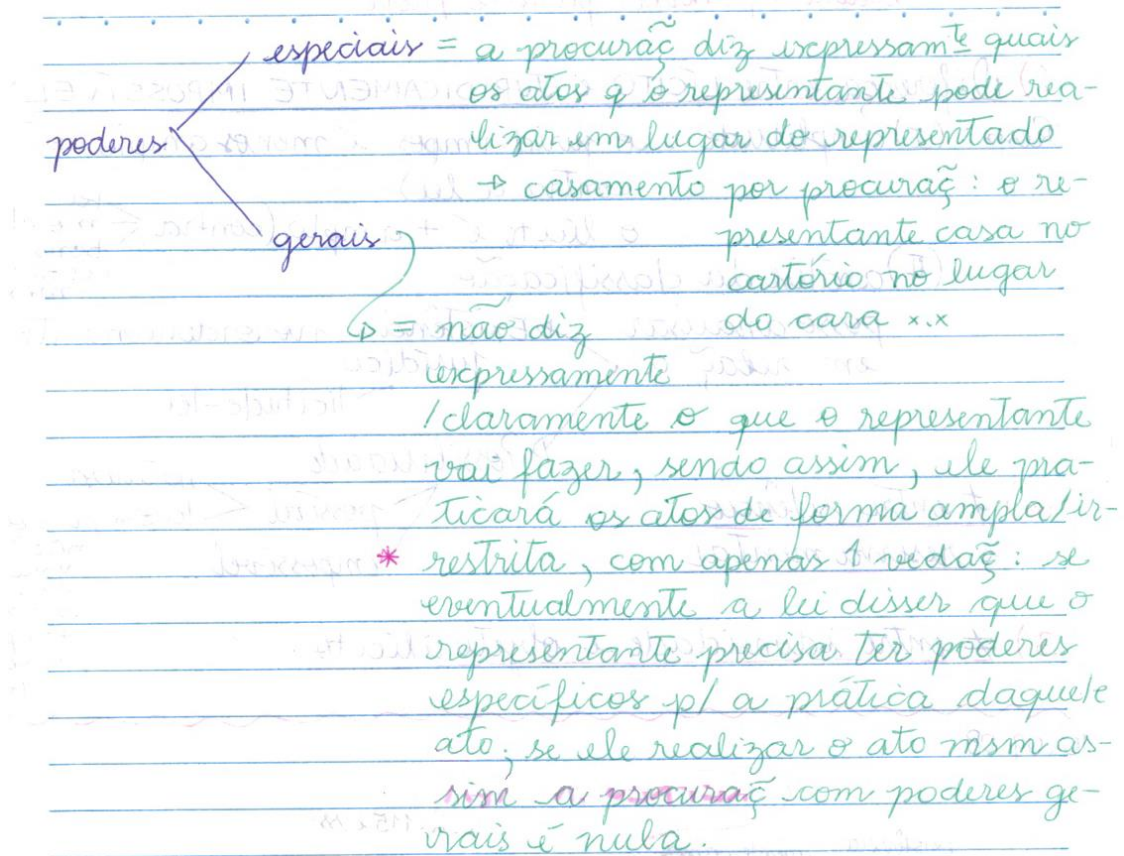 especiais = a procuraç̃ diz expressamte quais
os atos q o representante pode rea-
poderes lizar em lugar do representado
→ casamento por procuraç̃: o re-
gerais presentante casa no
cartório no lugar
= não diz do cara x.x
expressamente
/claramente o que o representante
vai fazer, sendo assim, ele pra-
ticará os atos de forma ampla/ir-
* restrita, com apenas 1 vedaç̃: se
eventualmente a lei disser que o
representante precisa ter poderes
específicos p/ a prática daquele
ato; se ele realizar o ato msm as-
sim a procuraç̃ com poderes ge-
rais é nula.